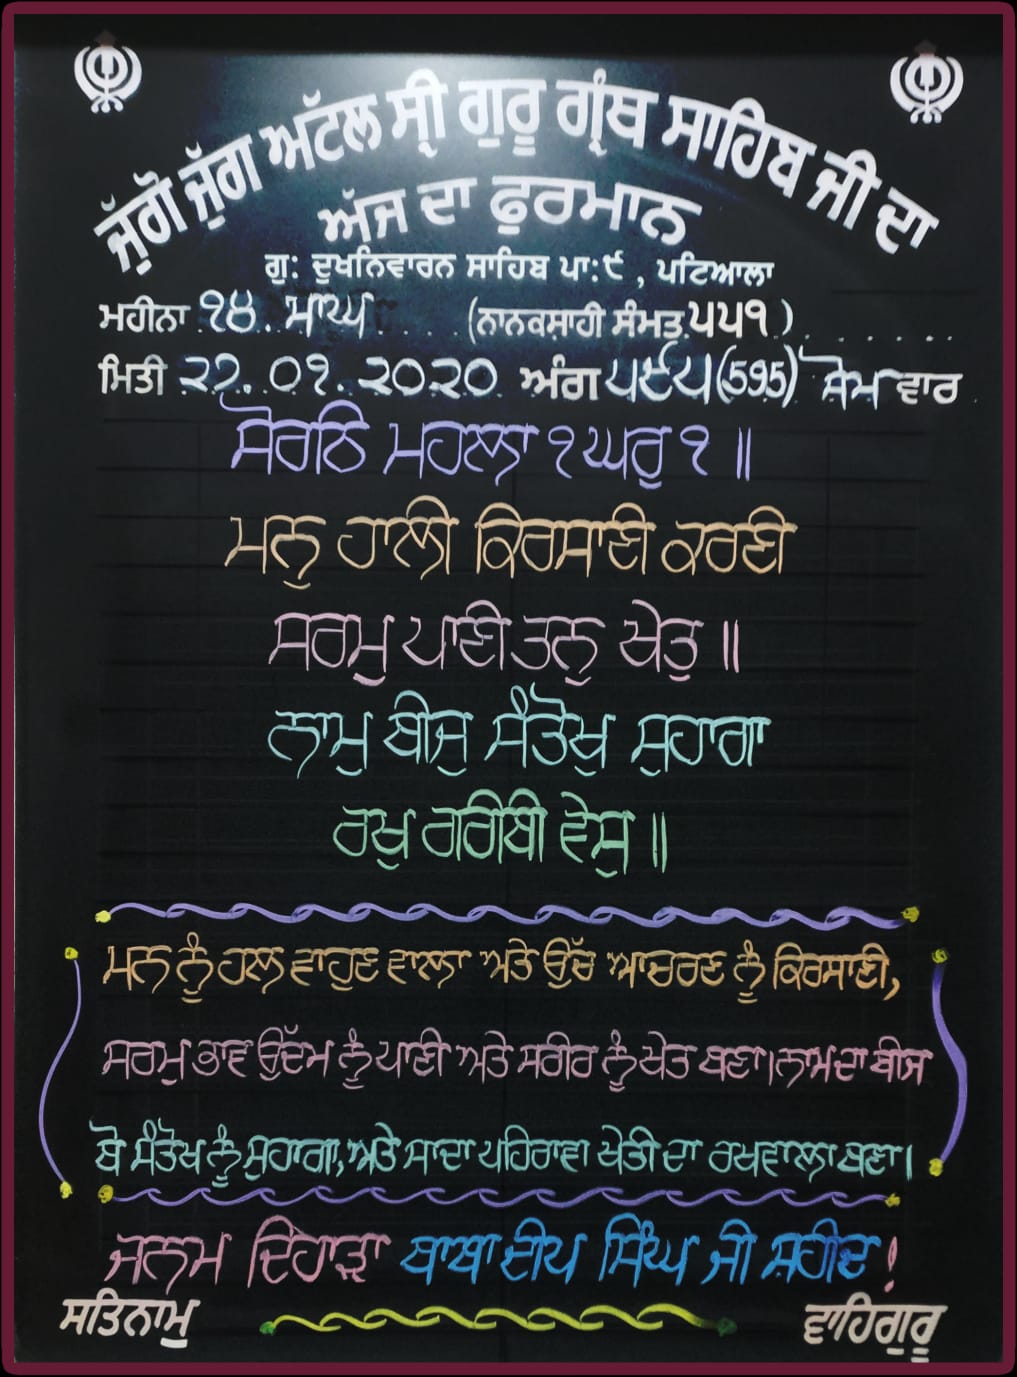 ਜੁੱਗੋ ਜੁੱਗ ਅਟੱਲ ਸ੍ਰੀ ਗੁਰੂ ਗ੍ਰੰਥ ਸਾਹਿਬ ਜੀ ਦਾ
ਅੱਜ ਦਾ ਫੁਰਮਾਨ
ਗੁ: ਦੁਖਨਿਵਾਰਨ ਸਾਹਿਬ ਪਾ:੯ , ਪਟਿਆਲਾ
ਮਹੀਨਾ ੧੪ ਮਾਘ (ਨਾਨਕਸ਼ਾਹੀ ਸੰਮਤ ੫੫੧)
ਮਿਤੀ ੨੭.੦੧.੨੦੨੦ ਅੰਗ ੫੯੫(595) ਸੋਮ ਵਾਰ
ਸੋਰਠਿ ਮਹਲਾ ੧ ਘਰੁ ੧ ॥
ਮਨੁ ਹਾਲੀ ਕਿਰਸਾਣੀ ਕਰਣੀ
ਸਰਮੁ ਪਾਣੀ ਤਨੁ ਖੇਤੁ ॥
ਨਾਮੁ ਬੀਜੁ ਸੰਤੋਖੁ ਸੁਹਾਗਾ
ਰਖੁ ਗਰੀਬੀ ਵੇਸੁ ॥
ਮਨ ਨੂੰ ਹਲ ਵਾਹੁਣ ਵਾਲਾ ਅਤੇ ਉੱਚ ਆਚਰਣ ਨੂੰ ਕਿਰਸਾਣੀ,
ਸਰਮੁ ਭਾਵ ਉੱਦਮ ਨੂੰ ਪਾਣੀ ਅਤੇ ਸਰੀਰ ਨੂੰ ਖੇਤ ਬਣਾ। ਨਾਮ ਦਾ ਬੀਜ
ਬੋ ਸੰਤੋਖ ਨੂੰ ਸੁਹਾਗਾ, ਅਤੇ ਸਾਦਾ ਪਹਿਰਾਵਾ ਖੇਤੀ ਦਾ ਰਖਵਾਲਾ ਬਣਾ।
ਜਨਮ ਦਿਹਾੜਾ ਬਾਬਾ ਦੀਪ ਸਿੰਘ ਜੀ ਸ਼ਹੀਦ !
ਸਤਿਨਾਮੁ ਵਾਹਿਗੁਰੂ